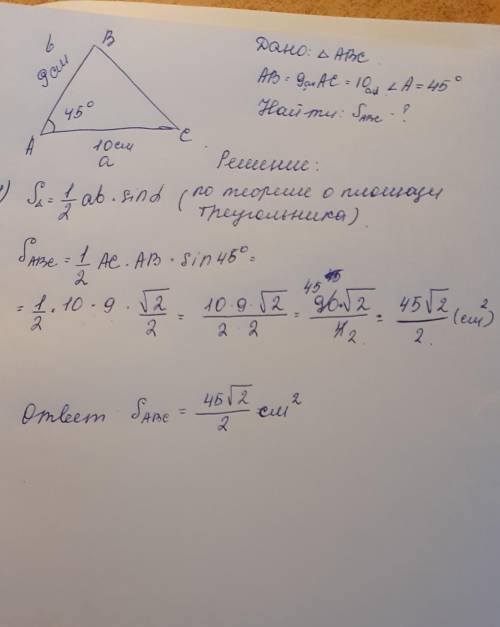 b B
9см
45°
A 10см C
a
Дано: △ABC
AB = 9см AC = 10см ∠A = 45°
Найти: S_ABC - ?
Решение:
) S_△ = 1/2 ab · sin α (по теореме о площади
треугольника)
S_ABC = 1/2 AC · AB · sin 45° =
= 1/2 · 10 · 9 · √2/2 = (10 · 9 · √2)/(2 · 2) = 45 (90·√2)/(4 2) = 45√2/2 (см²)
Ответ S_ABC = 45√2/2 см²